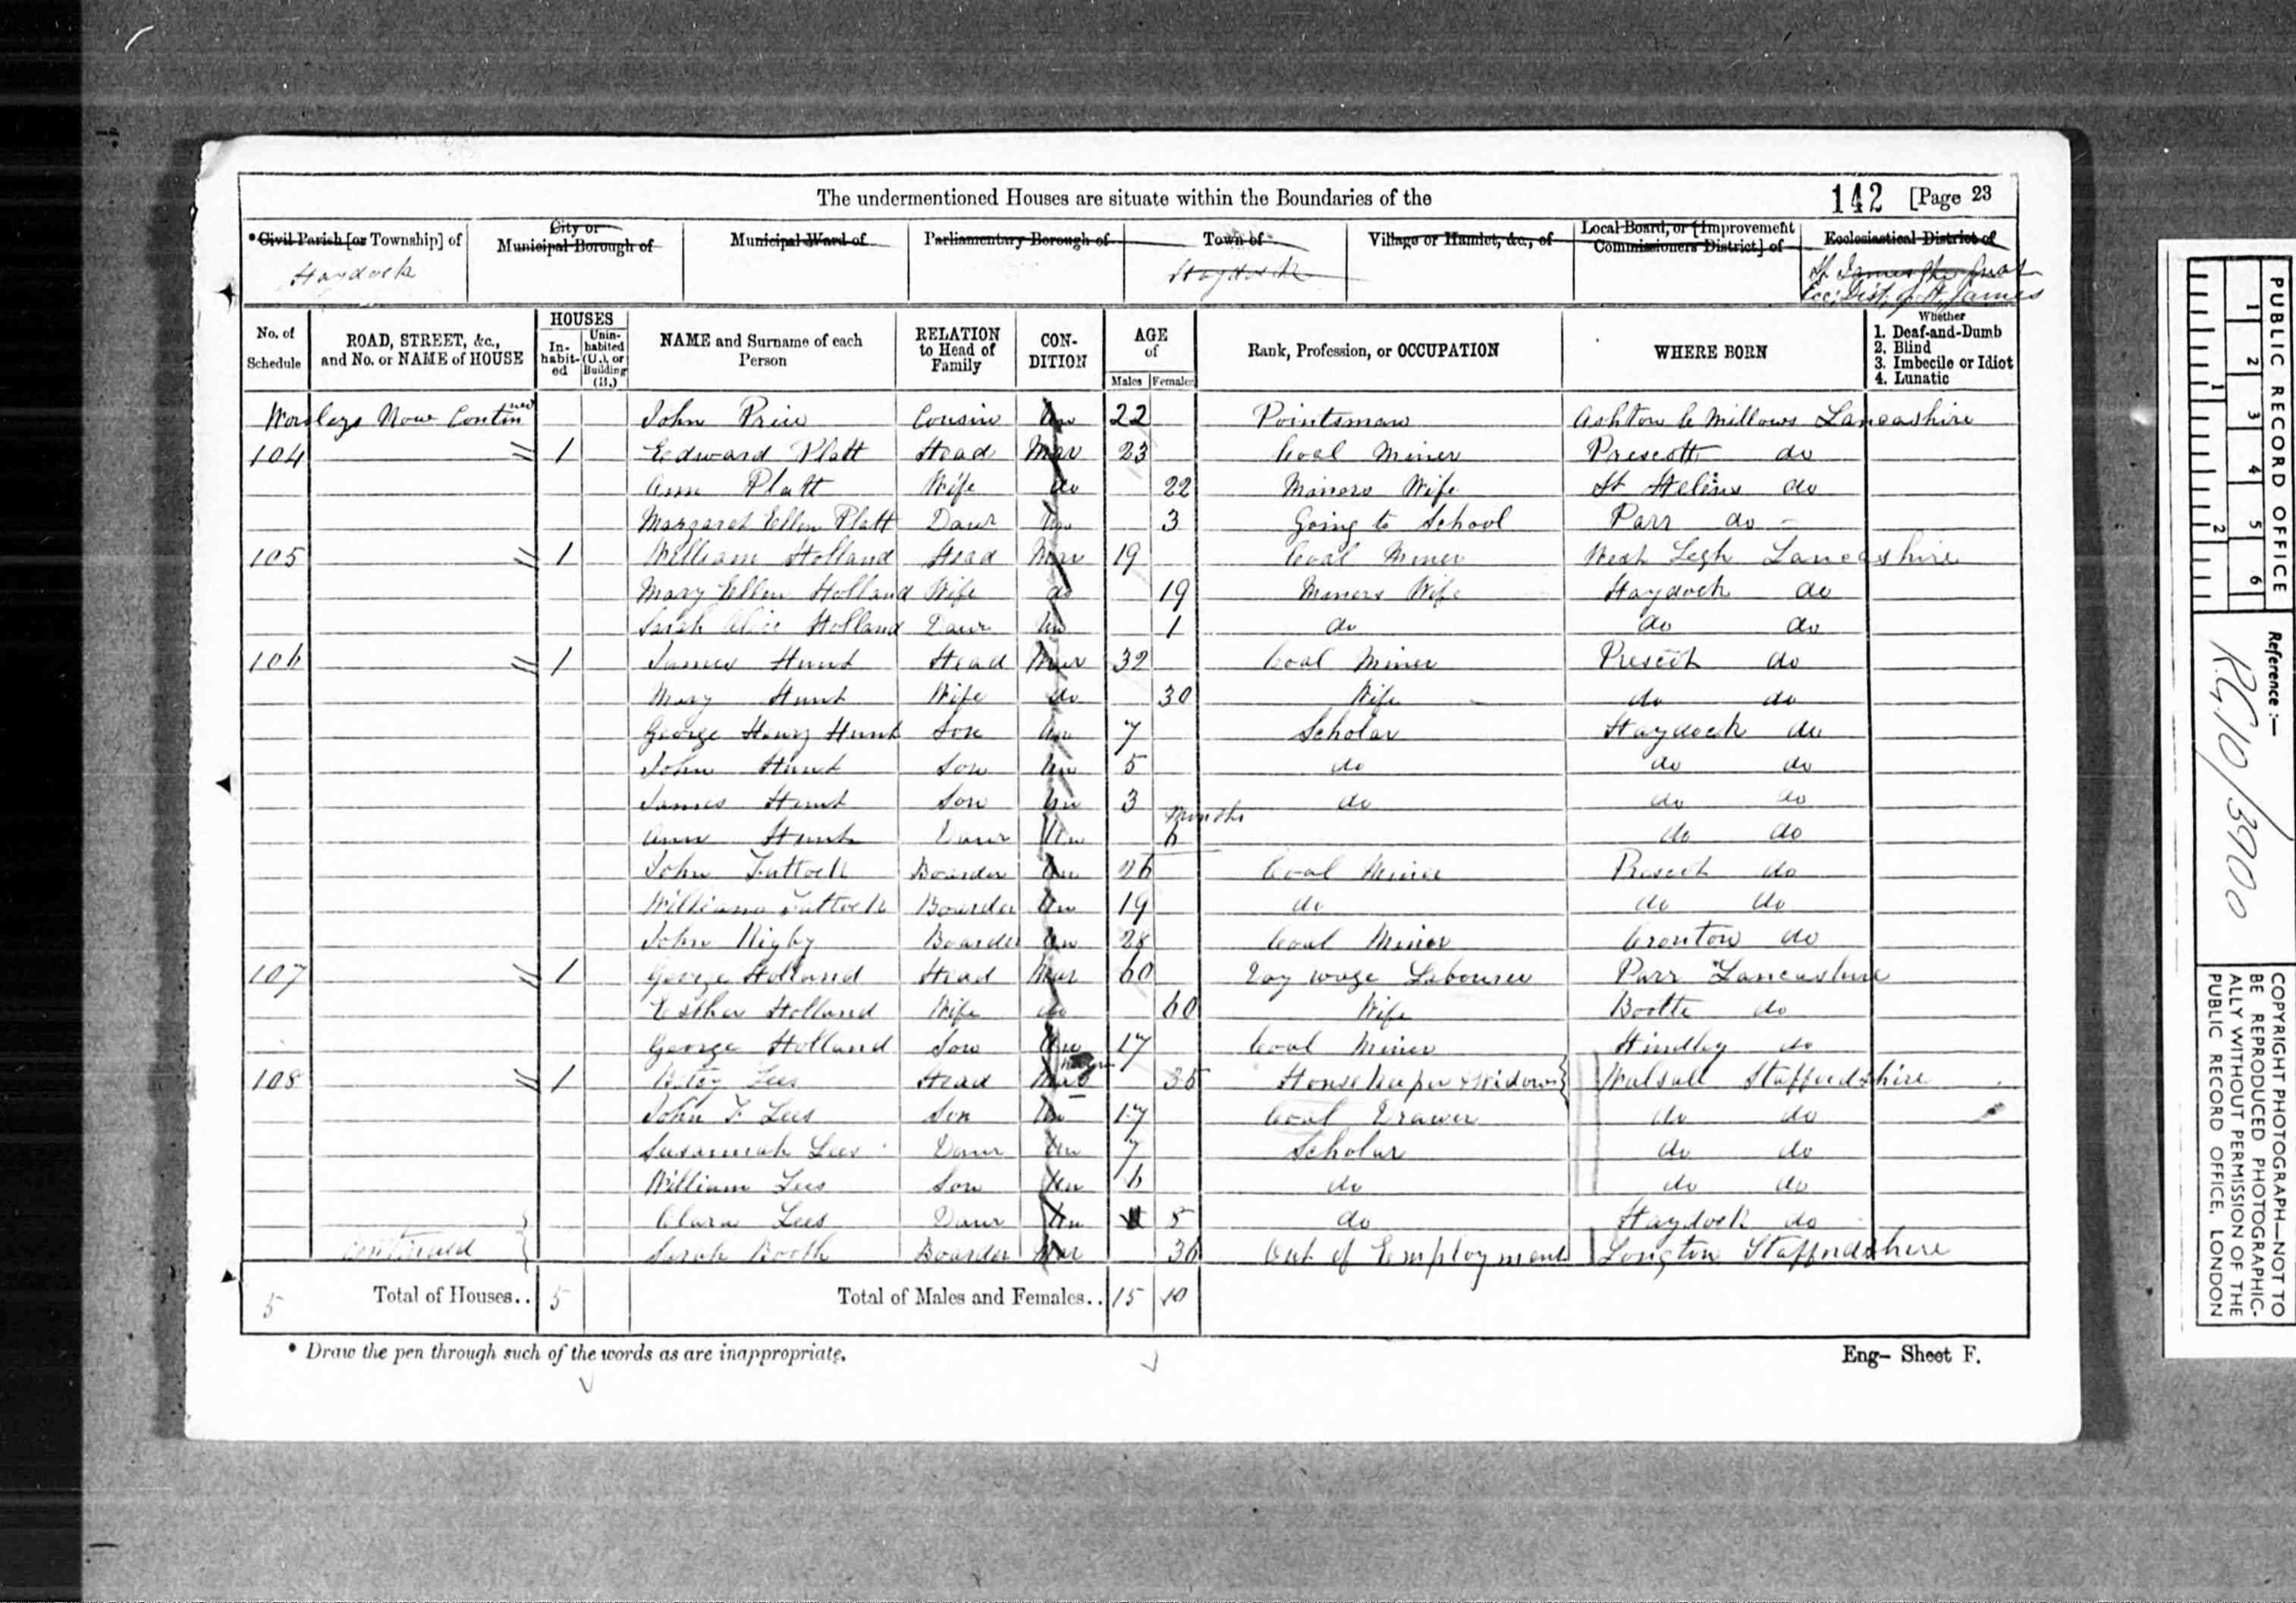 The undermentioned Houses are situate within the Boundaries of the
142 [Page 23
*Civil Parish [or Township] of
City or Municipal Borough of
Municipal Ward of
Parliamentary Borough of
Town of
Village or Hamlet, &c., of
Local Board, or [Improvement Commissioners District] of
Ecclesiastical District of
Haydock
Haydock
St James the Great
Eccl Dist of St James
No. of Schedule
ROAD, STREET, &c., and No. or NAME of HOUSE
HOUSES
In-habit-ed
Unin-habited (U.), or Building (B.)
NAME and Surname of each Person
RELATION to Head of Family
CON-DITION
AGE of
Males Females
Rank, Profession, or OCCUPATION
WHERE BORN
Whether
1. Deaf-and-Dumb
2. Blind
3. Imbecile or Idiot
4. Lunatic
Row Continued John Price Cousin Un 22 Pointsman Ashton Le Millows Lancashire
104 " 1 Edward Platt Head Mar 23 Coal Miner Prescott do
Ann Platt Wife do 22 Miners Wife St Helens do
Margaret Ellen Platt Daur Un 3 Going to School Parr do
105 " 1 William Holland Head Mar 19 Coal Miner West Legh Lancashire
Mary Ellen Holland Wife do 19 Miners Wife Haydock do
Sarah Alice Holland Daur Un 1 do do do
106 " 1 James Hunt Head Mar 32 Coal Miner Prescot do
Mary Hunt Wife do 30 Wife do do
George Henry Hunt Son Un 7 Scholar Haydock do
John Hunt Son Un 5 do do do
James Hunt Son Un 3 do do do
Ann Hunt Daur Un 6 Months do do
John Tuttock Boarder Un 26 Coal Miner Prescot do
William Tuttock Boarder Un 19 do do do
John Rigby Boarder Un 28 Coal Miner Cronton do
107 " 1 George Holland Head Mar 60 Day wage Labourer Parr Lancashire
Esther Holland Wife do 60 Wife Bootle do
George Holland Son Un 17 Coal Miner Hindley do
108 " 1 Betsy Lees Head 35 House Keeper & Widow Walsall Staffordshire
John F Lees Son Un 17 Coal Drawer do do
Susannah Lees Daur Un 7 Scholar do do
William Lees Son Un 6 do do do
Clara Lees Daur Un 5 do Haydock do
Continued Sarah Booth Boarder Mar 36 Out of Employment Longton Staffordshire
5 Total of Houses.. 5 Total of Males and Females.. 15 10
* Draw the pen through such of the words as are inappropriate.
Eng- Sheet F.
PUBLIC RECORD OFFICE
1 2 3 4 5 6
1 2
Reference :—
RG 10/3900
COPYRIGHT PHOTOGRAPH—NOT TO
BE REPRODUCED PHOTOGRAPHIC-
ALLY WITHOUT PERMISSION OF THE
PUBLIC RECORD OFFICE, LONDON